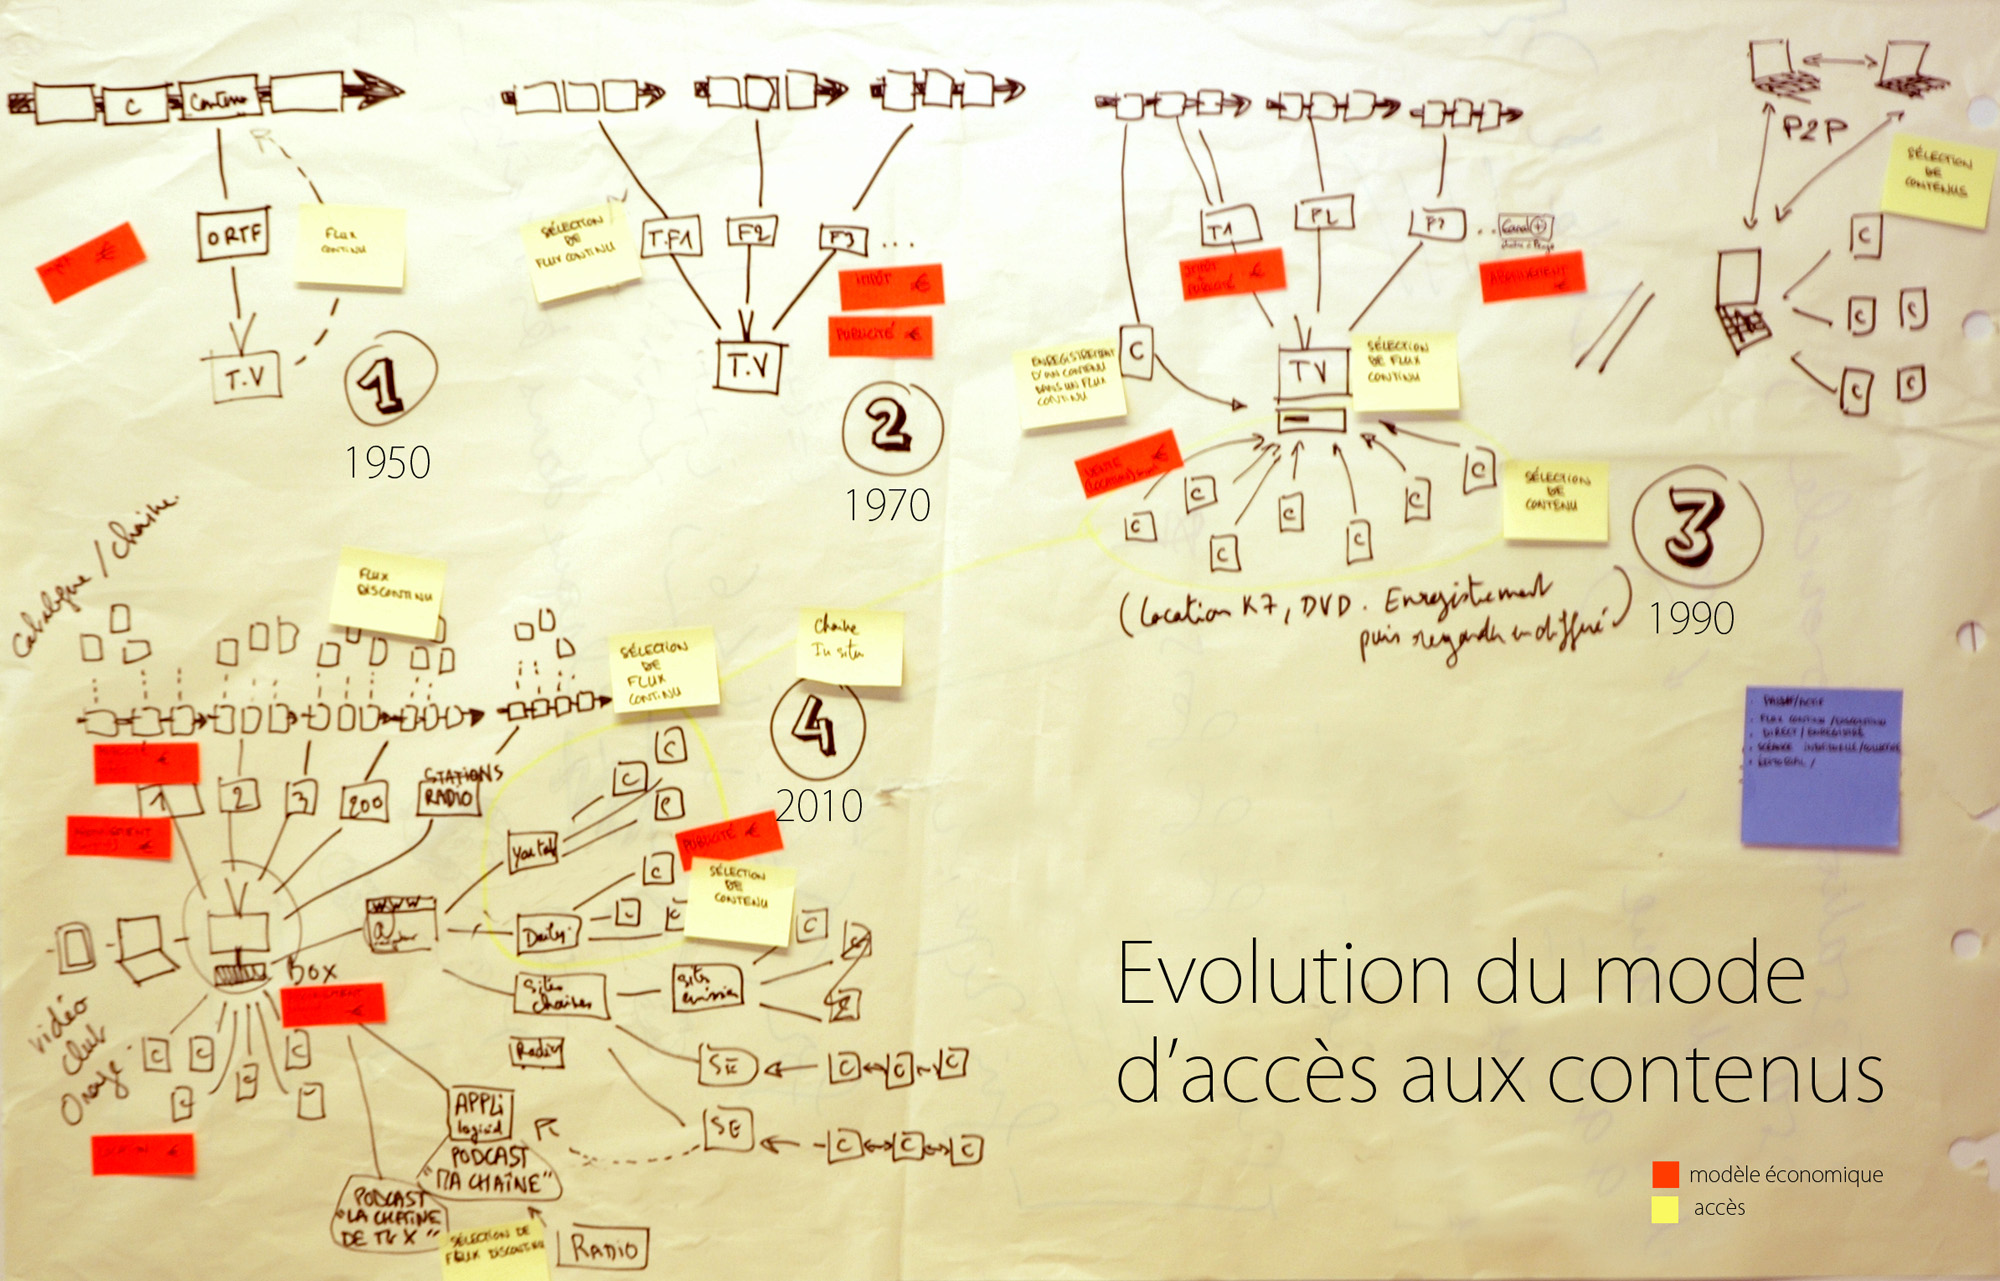 C
Contenu
ORTF
T.V
FLUX
CONTINU
1
1950
SÉLECTION
DE
FLUX CONTINU
T.F1
F2
F3 ...
IMPÔT €
PUBLICITÉ €
T.V
2
1970
T1
F2
F3
Canal +
IMPÔT €
PUBLICITÉ €
ABONNEMENT
€
C
ENREGISTREMENT
D'UN CONTENU
DANS UN FLUX
CONTINU
TV
SÉLECTION
DE FLUX
CONTINU
VENTE €
(LOCATION)
C
C
C
C
C
C
C
SÉLECTION
DE
CONTENU
3
1990
(Location K7, DVD. Enregistrement
puis regarder en différé)
P2P
SÉLECTION
DE
CONTENUS
C
C
C
C
C
Catalogue / chaîne
FLUX
DISCONTINU
SÉLECTION
DE
FLUX
CONTINU
Chaîne
4
2010
1
2
3
200
STATIONS
RADIO
€
€
C
C
C
PUBLICITÉ €
SÉLECTION
DE
CONTENU
WWW
@
Daily
C
C
C
Sites
chaînes
Sites
émission
C
C
C
Radio
BOX
€
vidéo
club
Orange
C
C
C
C
C
C
LOCATION €
SE
C
C
C
SE
C
C
C
APPLI
logiciel
PODCAST
"MA CHAÎNE"
PODCAST
"LA CHAÎNE
DE Mr X"
SÉLECTION DE
FLUX DISCONTINU
RADIO
PASSIF/ACTIF
FLUX CONTINU/DISCONTINU
DIRECT/ENREGISTRÉ
SÉANCE INDIVIDUELLE/COLLECTIVE
ÉDITORIAL /
Evolution du mode
d'accès aux contenus
modèle économique
accès